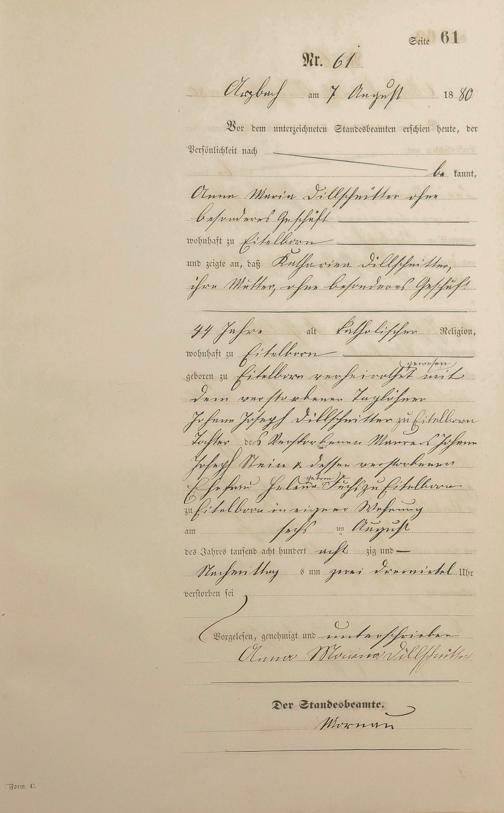 Seite 61
Nr. 61
Arzbach am 7 August 1880
Vor dem unterzeichneten Standesbeamten erschien heute, der
Persönlichkeit nach
be kannt,
Anna Maria Dillschnitter ohne
besonderes Geschäft
wohnhaft zu Eitelborn
und zeigte an, daß Katharina Dillschnitter,
ihre Mutter, ohne besonderes Geschäft
44 Jahre alt katholischer Religion,
wohnhaft zu Eitelborn
gewesen
geboren zu Eitelborn verheirathet mit
dem verstorbenen Taglöhner
Johann Joseph Dillschnitter zu Eitelborn
Tochter des verstorbenen Maurers Johann
Joseph Stein & dessen verstorbenen
Ehefrau Helena geborne Fuchs zu Eitelborn
zu Eitelborn in eigener Wohnung
am sechs ten August
des Jahres tausend acht hundert acht zig und
Nachmittag s um zwei dreiviertel Uhr
verstorben sei
Vorgelesen, genehmigt und unterschrieben
Anna Maria Dillschnitter
Der Standesbeamte.
Form. C.